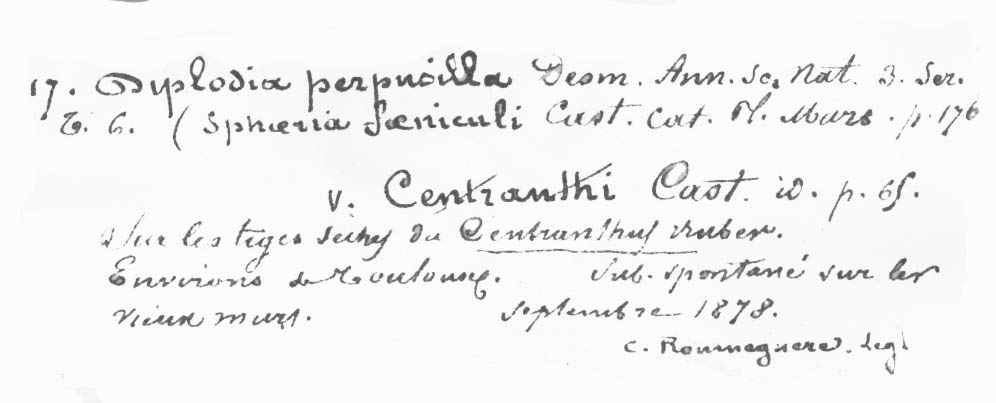 17. Dyplodia perpusilla Desm. Ann. Sc. Nat. 3. Ser.
T. 6. (Sphæria fœniculi Cast. Cat. Pl. Mars. p. 176
v. Centranthi Cast. id. p. 65.
Sur les tiges sèches du Centranthus ruber.
Environs de Toulouse. Sub-spontané sur les
vieux murs. Septembre 1878.
C. Roumeguère. Leg.